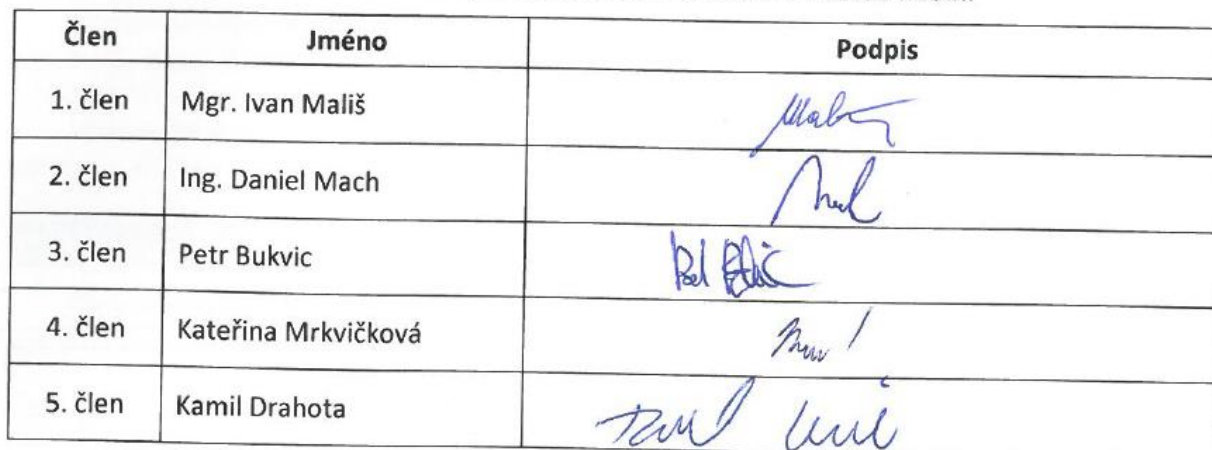 Člen Jméno Podpis
1. člen Mgr. Ivan Mališ
2. člen Ing. Daniel Mach
3. člen Petr Bukvic
4. člen Kateřina Mrkvičková
5. člen Kamil Drahota